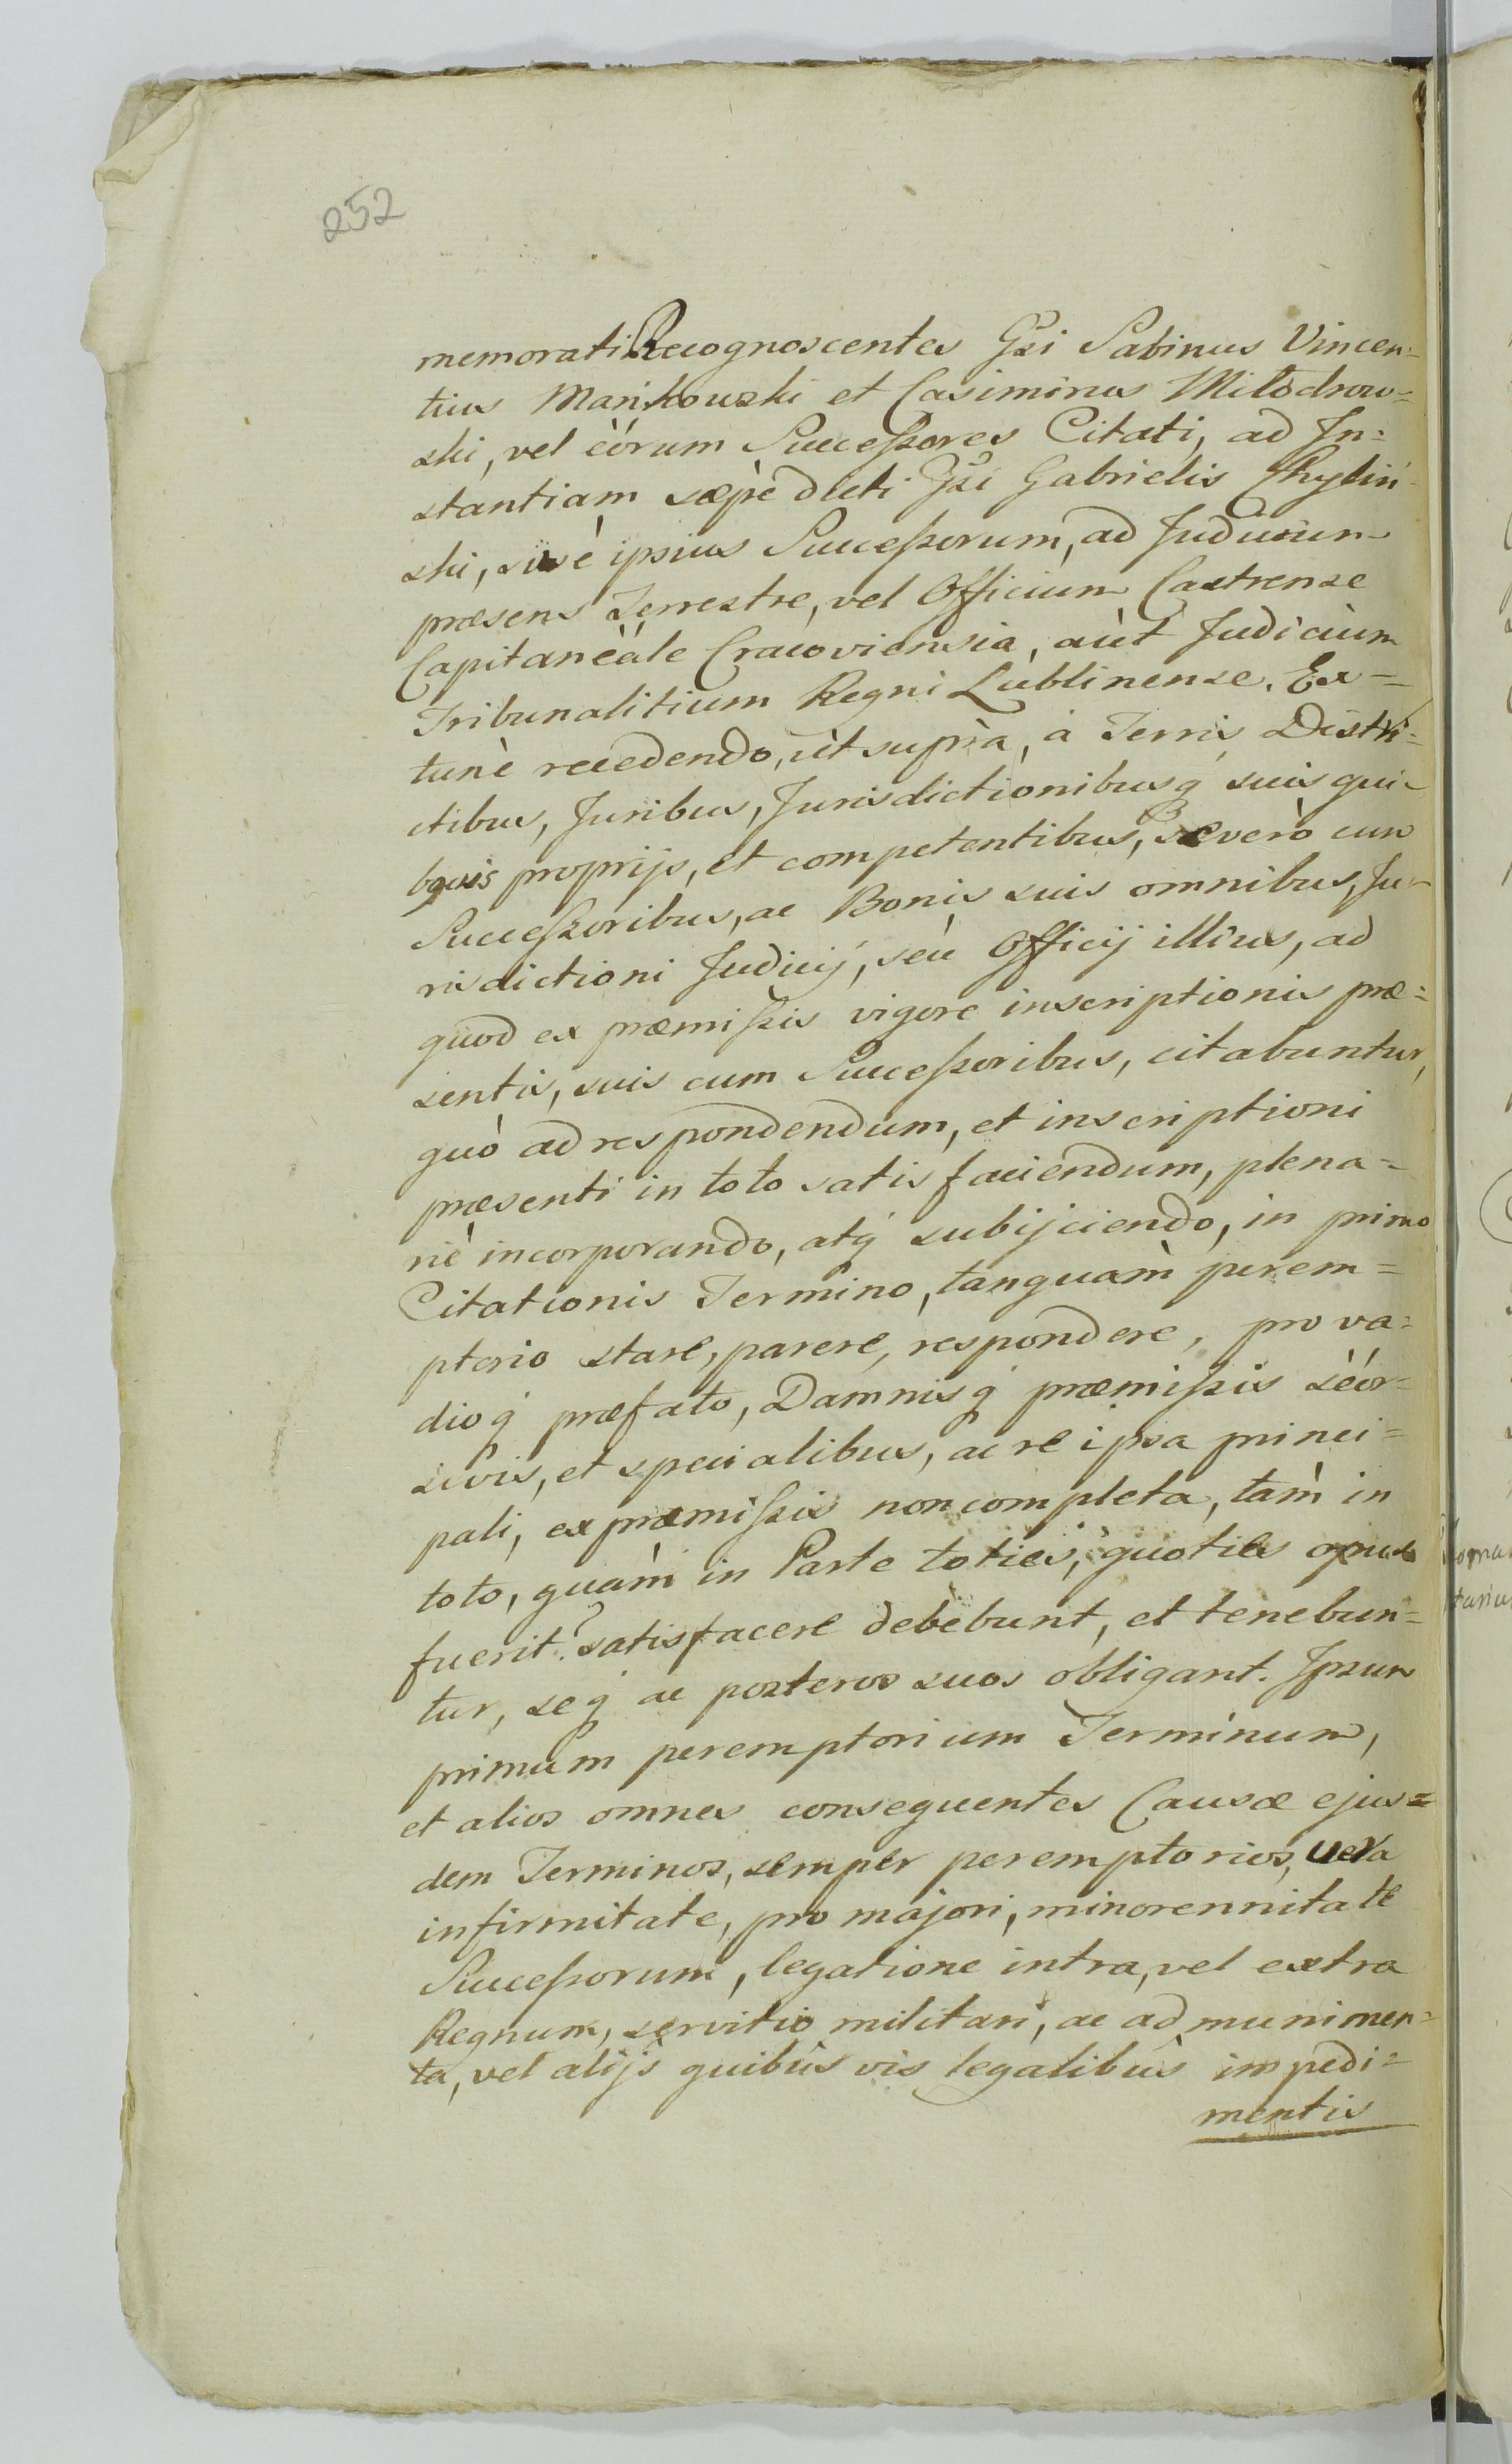 252
memorati Recognoscentes Gsi Sabinus Vincen=
tius Mańkowski et Casimirus Miłodrow=
ski, vel èórum Succeßores Citati, ad In=
stantiam sæpè dicti Gsi Gabrielis Chyliń
ski, sivè ipsius Succeßorum, ad Judicium
præsens Terrestre, vel Officium Castrense
Capitanèàle Cracoviensia, aùt Judicium
Tribunalitium Regni Lublinense. Ex=
tunè recedendo, ùt suprà, à Terris Distri=
ctibus, Juribus, Jurisdictionibusq́ suis qui-
busvis proprijs, et competentibus, Se verò cum
Succeßoribus, ac Bonis suis omnibus, Ju=
risdictioni Judicij, sèu Officij illius, ad
quod ex præmißis vigore inscriptionis præ=
sentis, suis cum Succeßoribus, citabuntur,
quò ad respondendum, et inscriptioni
præsenti in toto satisfaciendum, plena=
riè incorporando, atq́ subijciendo, in primo
Citationis Termino, tanquàm perem=
ptorio stare, parere, respondere, pro va=
dioq́ præfato, Damnisq́ præmißis sèór=
sivis, et specialibus, ac re ipsa princi=
pali, ex præmißis non completa, tàm in
toto, quàm in Parte toties, quoties opus
fuerit? satisfacere debebunt, et tenebun=
tur, seq́ ac posteros suos obligant. Ipsum
primum peremptorium Terminum,
et alios omnes consequentes Causæ ejus=
dem Terminos, semper peremptorios, vera
infirmitate, pro majori, minorennitate
Succeßorum, legatione intra, vel extra
Regnum, servitio militari, ac ad munimen=
ta, vel alijs quibus vis legalibus impedi=
mentis